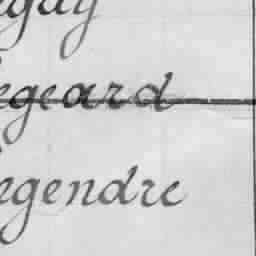 egay
egeard
egendre